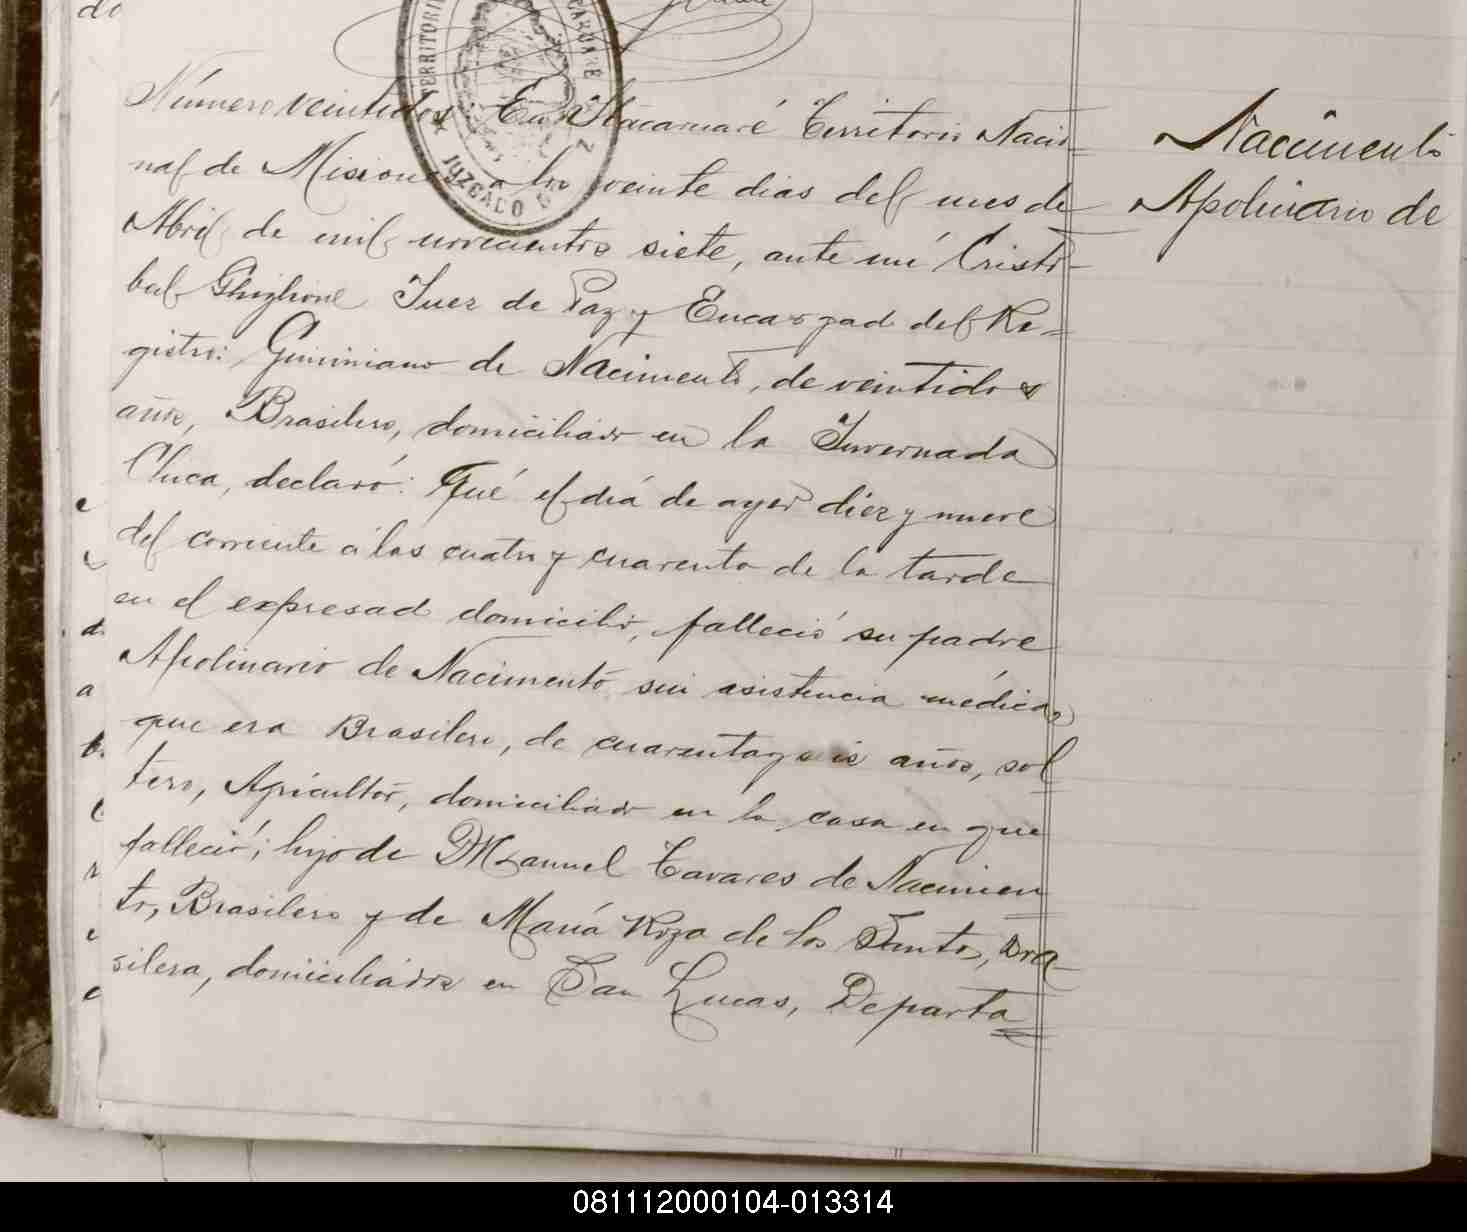 do
TERRITORIO
JUZGADO DE
Número veintidos En Itacaruaré Territorio Nacio=
nal de Misiones a los veinte dias del mes de
Abril de mil novecientos siete, ante mí Cristo-
bal Ghiglione Juez de Paz y Encargad del Re=
gistro: Giminiano de Nacimento, de veintidos
años, Brasilero, domiciliado en la Invernada
Chica, declaró: Qué el día de ayer diez y nueve
del corriente á las cuatro y cuarenta de la tarde
en el expresad domicilio, falleció su padre
Apolinario de Nacimento sin asistencia médica,
que era Brasilero, de cuarenta y seis años, sol
tero, Agricultor, domiciliado en la casa en que
falleció; hijo de Manuel Tavares de Nacimien
to, Brasilero y de María Roza de los Santos, Bra-
silera, domiciliados en San Lucas, Departa=
Nacimento
Apolinario de
081112000104-013314